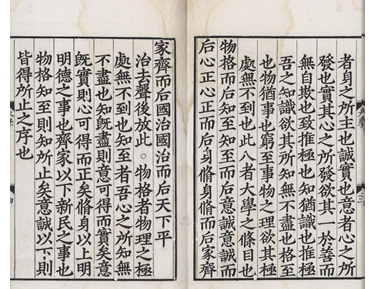 者身之所主也誠實也意者心之所
發也實其心之所發欲其一於善而
無自欺也致推極也知猶識也推極
吾之知識欲其所知無不盡也格至
也物猶事也窮至事物之理欲其極
處無不到也此八者大學之條目也
物格而后知至知至而后意誠意誠而
后心正心正而后身脩身脩而后家齊
家齊而后國治國治而后天下平
治去聲後放此○物格者物理之極
處無不到也知至者吾心之所知無
不盡也知既盡則意可得而實矣意
既實則心可得而正矣脩身以上明
明德之事也齊家以下新民之事也
物格知至則知所止矣意誠以下則
皆得所止之序也